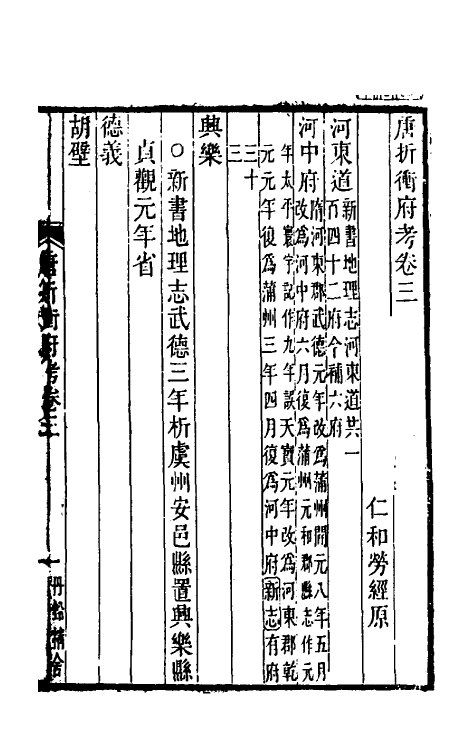 唐折衝府考卷三
仁和勞經原
河東道
新書地理志河東道其一
百四十二府今補六府
河中府
隋河東郡武德元年改爲蒲州開元八年五月
改爲河中府六月復爲蒲州元和郡縣志作元
年太平寰宇記作九年誤天寶元年改爲河東郡乾
元元年復爲蒲州三年四月復爲河中府新志有府
三十
三
興樂
○新書地理志武德三年析虞州安邑縣置興樂縣
貞觀元年省
德義
胡壁
唐折衝府考卷三
一
丹鉛精舍